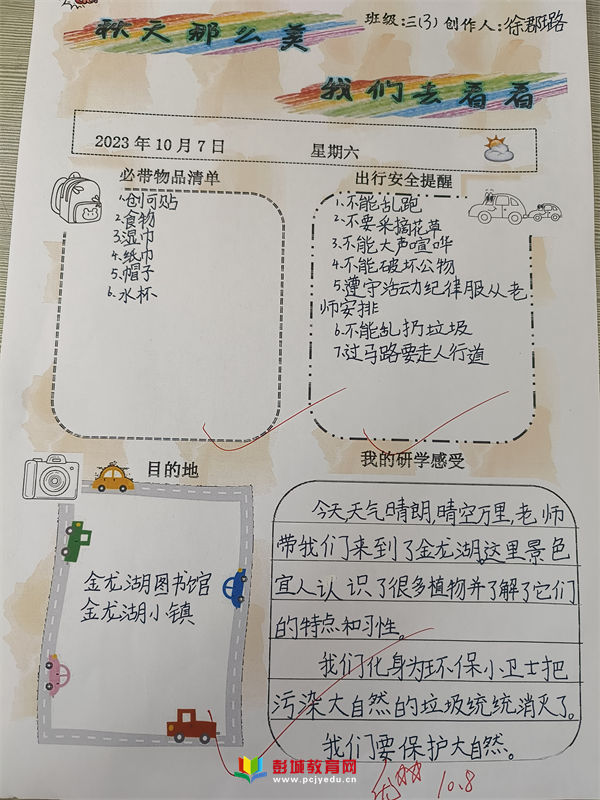 秋天那么美
班级:三(3) 创作人:徐郡璐
我们去看看
2023年10月7日 星期六
必带物品清单
1.创可贴
2.食物
3.湿巾
4.纸巾
5.帽子
6.水杯
出行安全提醒
1.不能乱跑
2.不要采摘花草
3.不能大声喧哗
4.不能破坏公物
5.遵守活动纪律服从老
师安排
6.不能乱扔垃圾
7.过马路要走人行道
目的地
金龙湖图书馆
金龙湖小镇
我的研学感受
今天,天气晴朗,晴空万里,老师
带我们来到了金龙湖,这里景色
宜人认识了很多植物并了解了它们
的特点和习性。
我们化身为环保小卫士把
污染大自然的垃圾统统消灭了。
我们要保护大自然。
10.8
彭城教育网
www.pcjyedu.cn